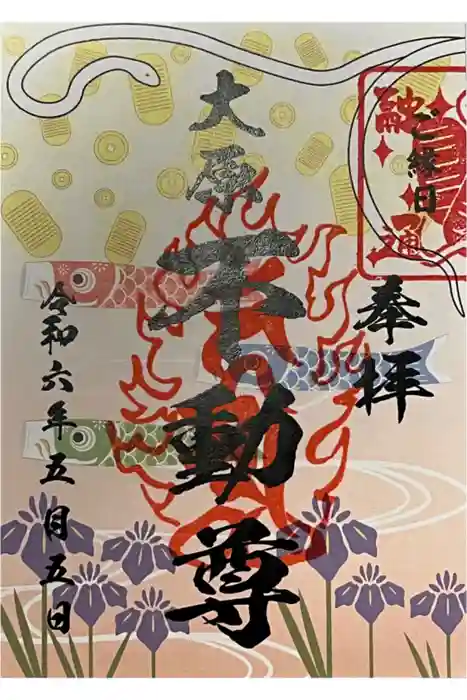 奉拝
ご縁日
融通
大原不動尊
令和六年五月五日